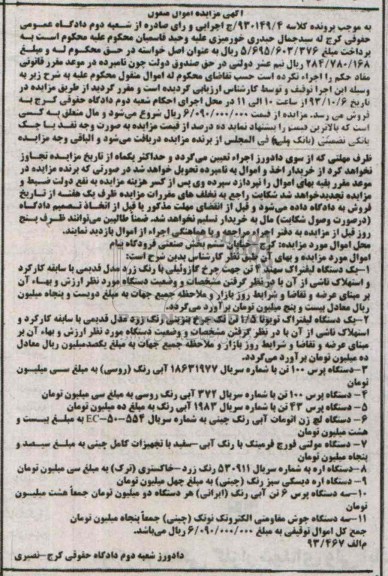 آگهی مزایده اموال منقول
به موجب پرونده کلاسه ۹۳۰۱۴۹/۴ ج اجرایی و رای صادره از شعبه دوم دادگاه عمومی
حقوقی کرج له سیدجمال حیدری خورمیزی علیه وحید قاسمیان محکوم علیه محکوم است به
پرداخت مبلغ ۵/۶۹۵/۶۰۳/۳۷۶ ریال به عنوان اصل خواسته در حق محکوم له و مبلغ
۲۸۴/۷۸۰/۱۶۸ ریال نیم عشر دولتی در حق صندوق دولت چون نامبرده در موعد مقرر قانونی
مفاد حکم را اجراء نکرده است حسب تقاضای محکوم له اموال منقول محکوم علیه به شرح زیر به
وسیله این اجرا توقیف و توسط کارشناس ارزیابی گردیده است و مقرر گردید از طریق مزایده در
تاریخ ۹۳/۱۰/۶ از ساعت ۱۰ الی ۱۱ در محل اجرای احکام شعبه دوم دادگاه حقوقی کرج به
فروش می رسد. مزایده از قیمت ۶/۰۹۰/۰۰۰/۰۰۰ ریال شروع می‌شود و مال متعلق به کسی
است که بالاترین قیمت را پیشنهاد نماید ده درصد از قیمت مزایده به صورت وجه نقد یا چک
بانکی تضمینی (بانک ملی) فی المجلس از برنده مزایده دریافت می‌شود و الباقی وجه مزایده
ظرف مهلتی که از سوی دادورز اجراء تعیین می‌گردد و حداکثر یکماه از تاریخ مزایده تجاوز
نخواهد کرد از خریدار اخذ و اموال به نامبرده تحویل خواهد شد در صورتی که برنده مزایده در
موعد مقرر بقیه بهای اموال را نپردازد سپرده وی پس از کسر هزینه مزایده به نفع دولت ضبط و
مزایده تجدید خواهد شد شکایت راجع به تخلف های مقررات مزایده ظرف یک هفته از تاریخ
فروش به دادگاه داده می‌شود و قبل از انقضای مهلت مذکور یا قبل از اتخاذ تصمیم دادگاه
(درصورت وصول شکایت) مال به خریدار تسلیم نخواهد شد. ضمناً طالبین می‌توانند ظرف پنج
روز قبل از مزایده به دفتر اجراء مراجعه و با هماهنگی اجراء از اموال بازدید نمایند.
محل اموال مورد مزایده: کرج-خیابان ششم بخش صنعتی فرودگاه پیام
اموال مورد مزایده و بهای آن طبق نظر کارشناس بدین شرح است:
۱-یک دستگاه لیفتراک سهند ۳ تن جهت چرخ گازوئیلی با رنگ زرد مدل قدیمی با سابقه کارکرد
و استهلاک ناشی از آن با در نظر گرفتن مشخصات و وضعیت دستگاه مورد نظر ارزش و بهاء آن
بر مبنای عرضه و تقاضا و شرایط روز بازار و ملاحظه جمیع جهات به مبلغ دویست و پنجاه میلیون
ریال معادل بیست و پنج میلیون تومان برآورد می‌گردد.
۲-یک دستگاه لیفتراک تویوتا ۱/۵ تن تک چرخ بنزینی رنگ زرد مدل قدیمی با سابقه کارکرد و
استهلاک ناشی از آن با در نظر گرفتن مشخصات و وضعیت دستگاه مورد نظر ارزش و بهاء آن بر
مبنای عرضه و تقاضا و شرایط روز بازار و ملاحظه جمیع جهات به مبلغ یکصدمیلیون ریال معادل
ده میلیون تومان برآورد می‌گردد.
۳-دستگاه پرس ۱۰۰ تن با شماره سریال ۱۸۶۳۱۹۷۷ آبی رنگ (روسی) به مبلغ سی میلیون
تومان
۴- دستگاه پرس ۱۰۰ تن با شماره سریال ۳۷۲ آبی رنگ روسی به مبلغ سی میلیون تومان
۵- دستگاه پرس ۴۳ تن با شماره سریال ۱۹۸۳ آبی رنگ به مبلغ ده میلیون تومان
۶- دستگاه لچ زن اتومات آبی رنگ چینی به شماره سریال EC-۵۰-۵۵۴ به مبلغ بیست و
هشت میلیون تومان
۷- دستگاه مولتی فورج فرمینگ با رنگ آبی-سفید با تجهیزات کامل چینی به مبلغ سیصد و
پنجاه میلیون تومان
۸-دستگاه اره به شماره سریال ۵۳۰۹۱۱ رنگ زرد-خاکستری (ترک) به مبلغ سی میلیون تومان
۹-دستگاه اره دیسکی سبز رنگ (چینی) به مبلغ چهل میلیون تومان
۱۰-سه دستگاه پرس ۶ تن آبی رنگ (ایرانی) هر دستگاه دو میلیون تومان جمعاً هشت میلیون
تومان
۱۱-سه دستگاه جوش مقاومتی الکترونک نونک (چینی) جمعاً پنجاه میلیون تومان
جمع کل اموال توقیفی به مبلغ ۶/۰۹۰/۰۰۰/۰۰۰ ریال می‌باشد.
م الف ۹۳/۴۶۷
دادورز شعبه دوم دادگاه حقوقی کرج-نصیری